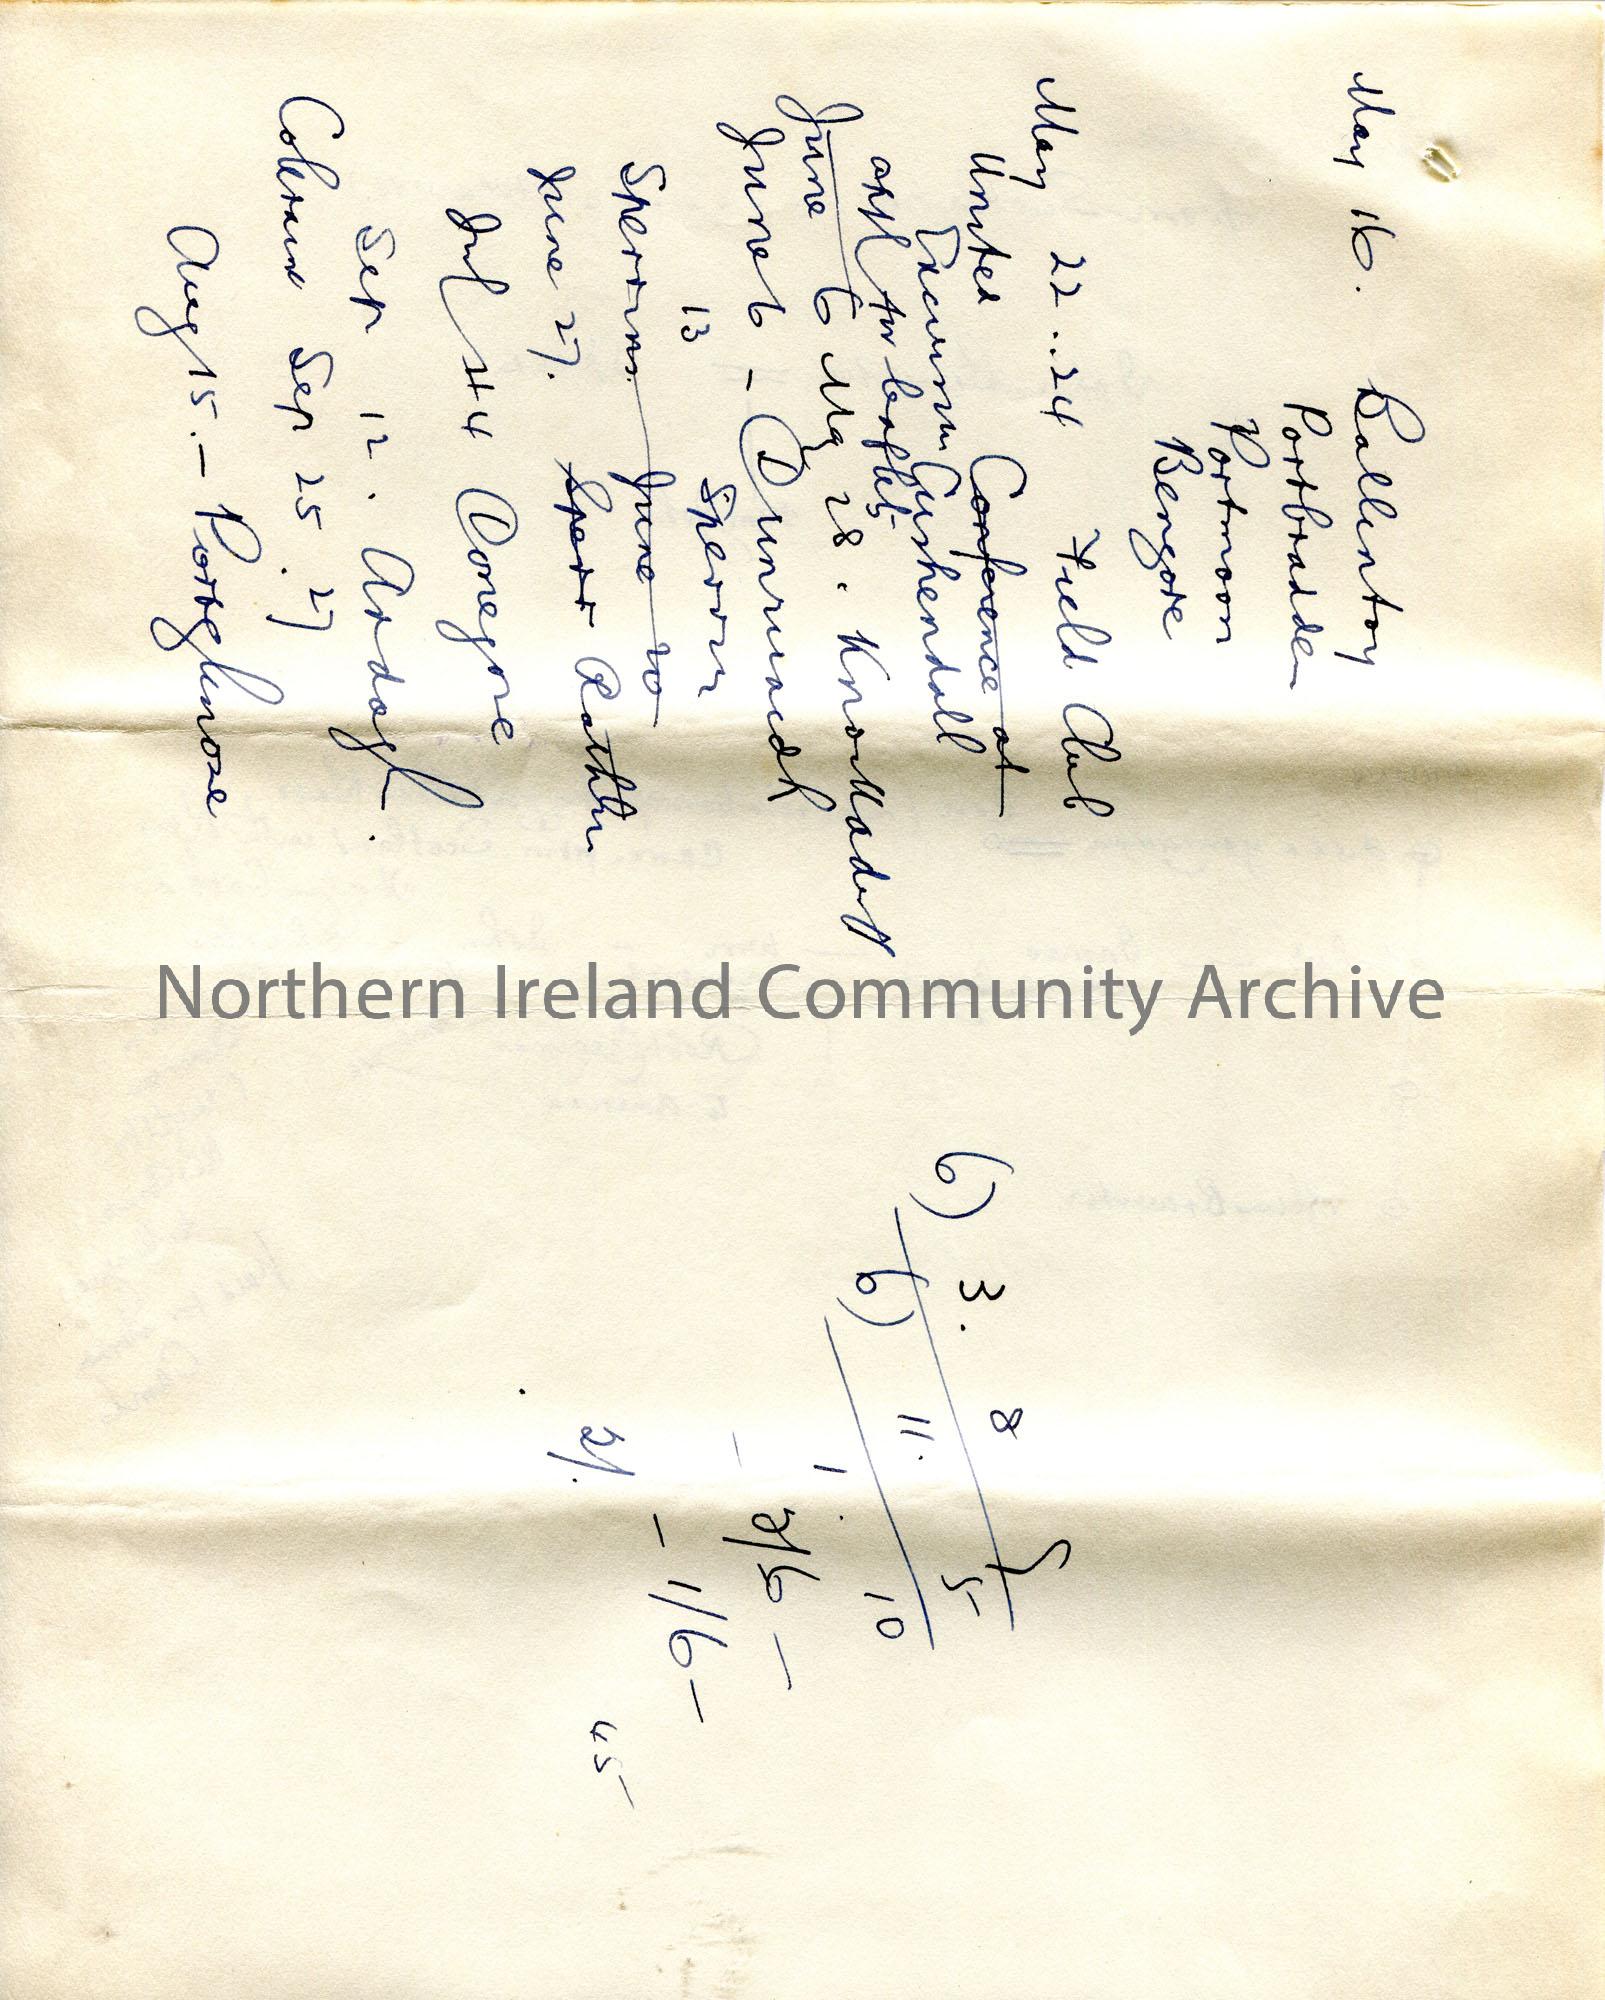 May 16. Ballintoy
Portbradden
Portmoon
Bengore
May 22..24 Field Club
United Conference at
Excursion Cushendall
appl for
June 6 May 28. Knocklad
June 6 - Dunruadh
13 Sperrin
Sperrins. June 20
June 27. Sperr Rathlin
Jul 4 Donegore
Sep 12. Ardagh.
Coleraine Sep 25.27
Aug 15. - Portglenone
Northern Ireland Community Archive
6) 3. 8 5
6) 11. 10
1.
2/6 -
- 1/6 -
2/.
45